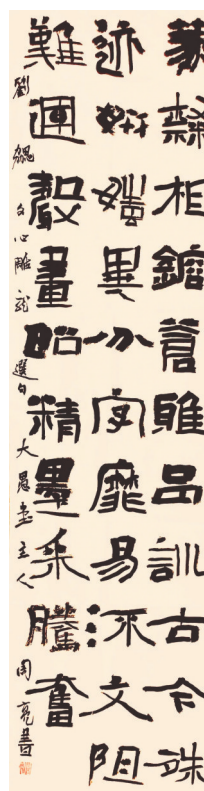 篆隸相鎔蒼雅品訓古今殊
迹妍媸異分字靡易流文阻
難運聲畫昭精墨采騰奮
劉勰文心雕龍選句大愚堂主人周亮書